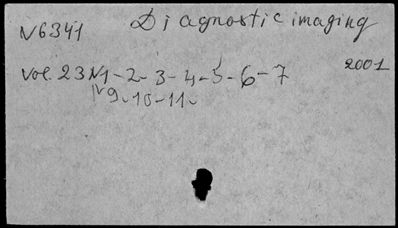 N6341 Diagnostic imaging
Vol. 23 N1-2-3-4-5-6-7 2001
N9-10-11-